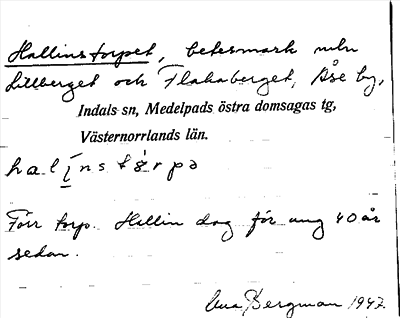 Hallinstorpet, betesmark mln
Lillberget och Flakaberget, Åse by,
Indals sn, Medelpads östra domsagas tg,
Västernorrlands län.
halinstårpə
Förr torp. Hellin dog för ung 40 år
sedan.
Bergman 1947.